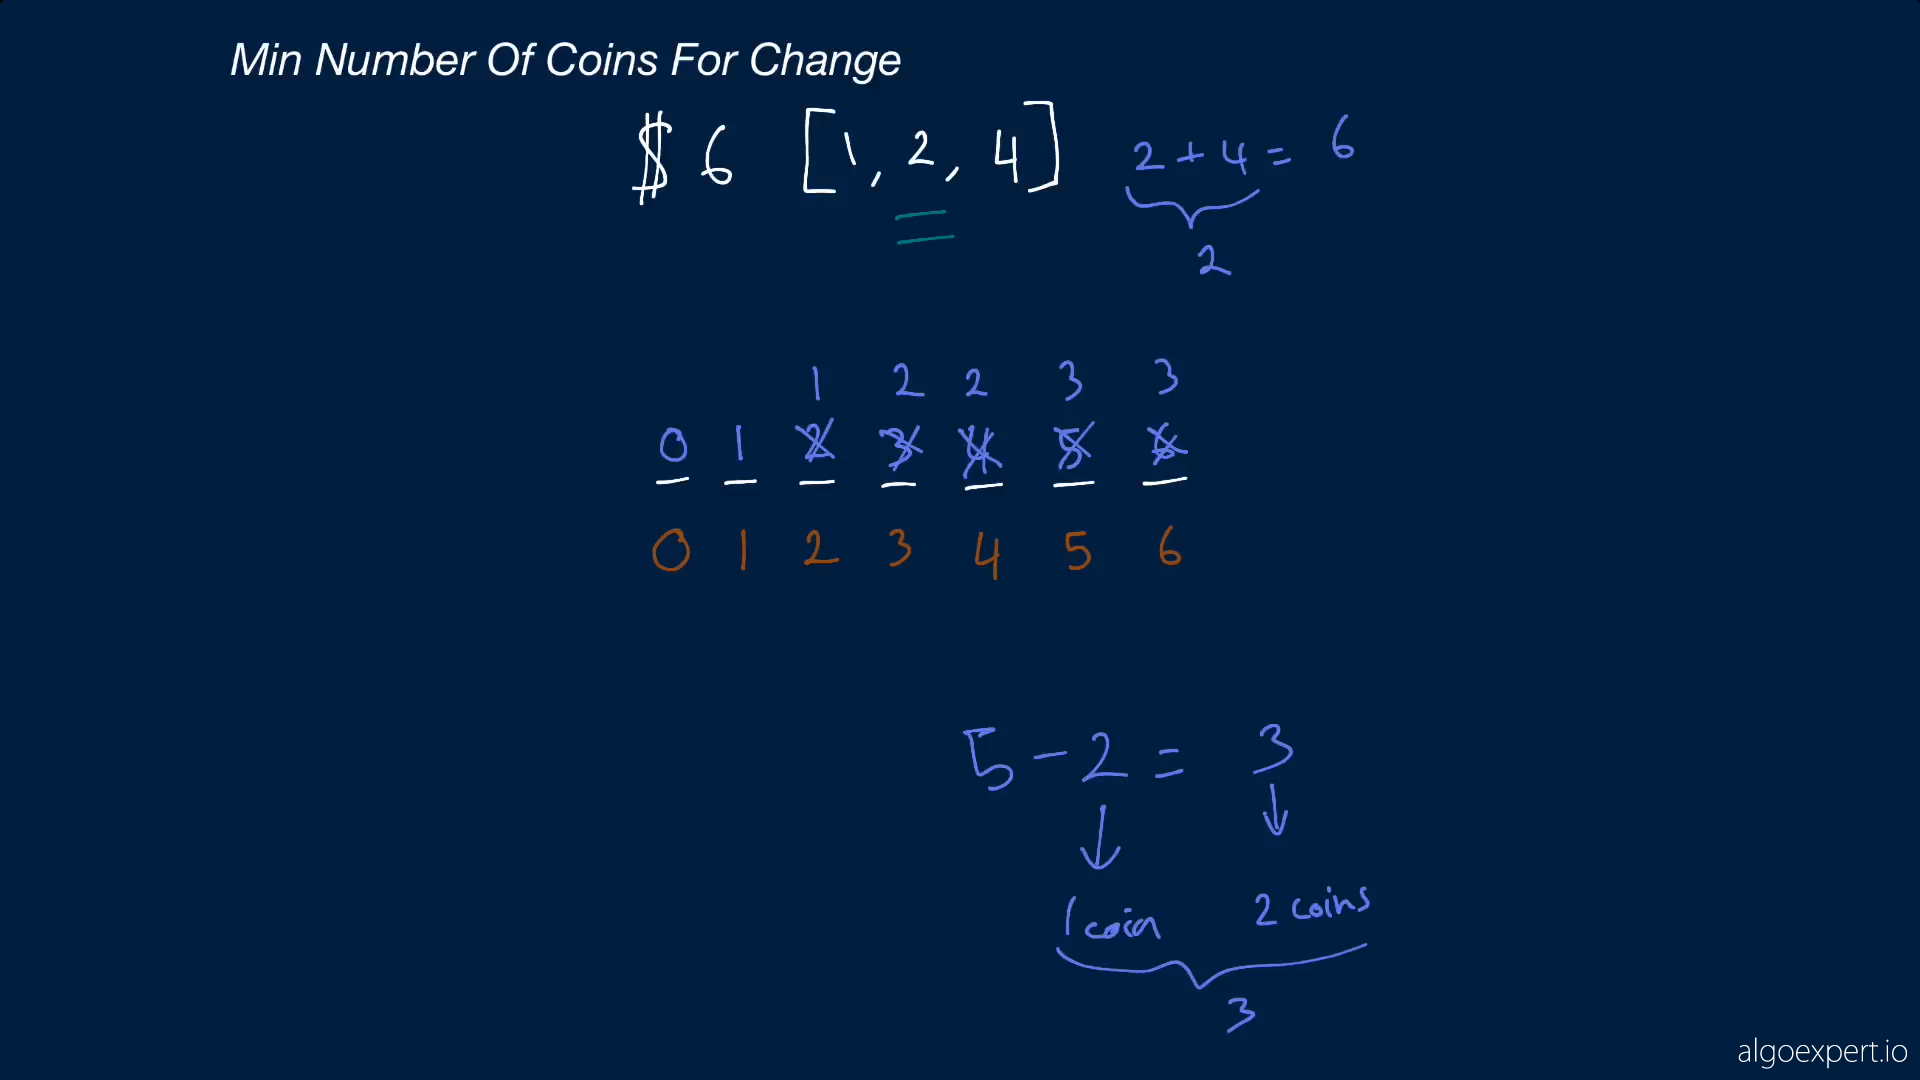 Min Number Of Coins For Change
$ 6 [1, 2, 4] 2 + 4 = 6
2
1 2 2 3 3
0 1 2 3 4 5 6
0 1 2 3 4 5 6
5 - 2 = 3
1 coin 2 coins
3
algoexpert.io